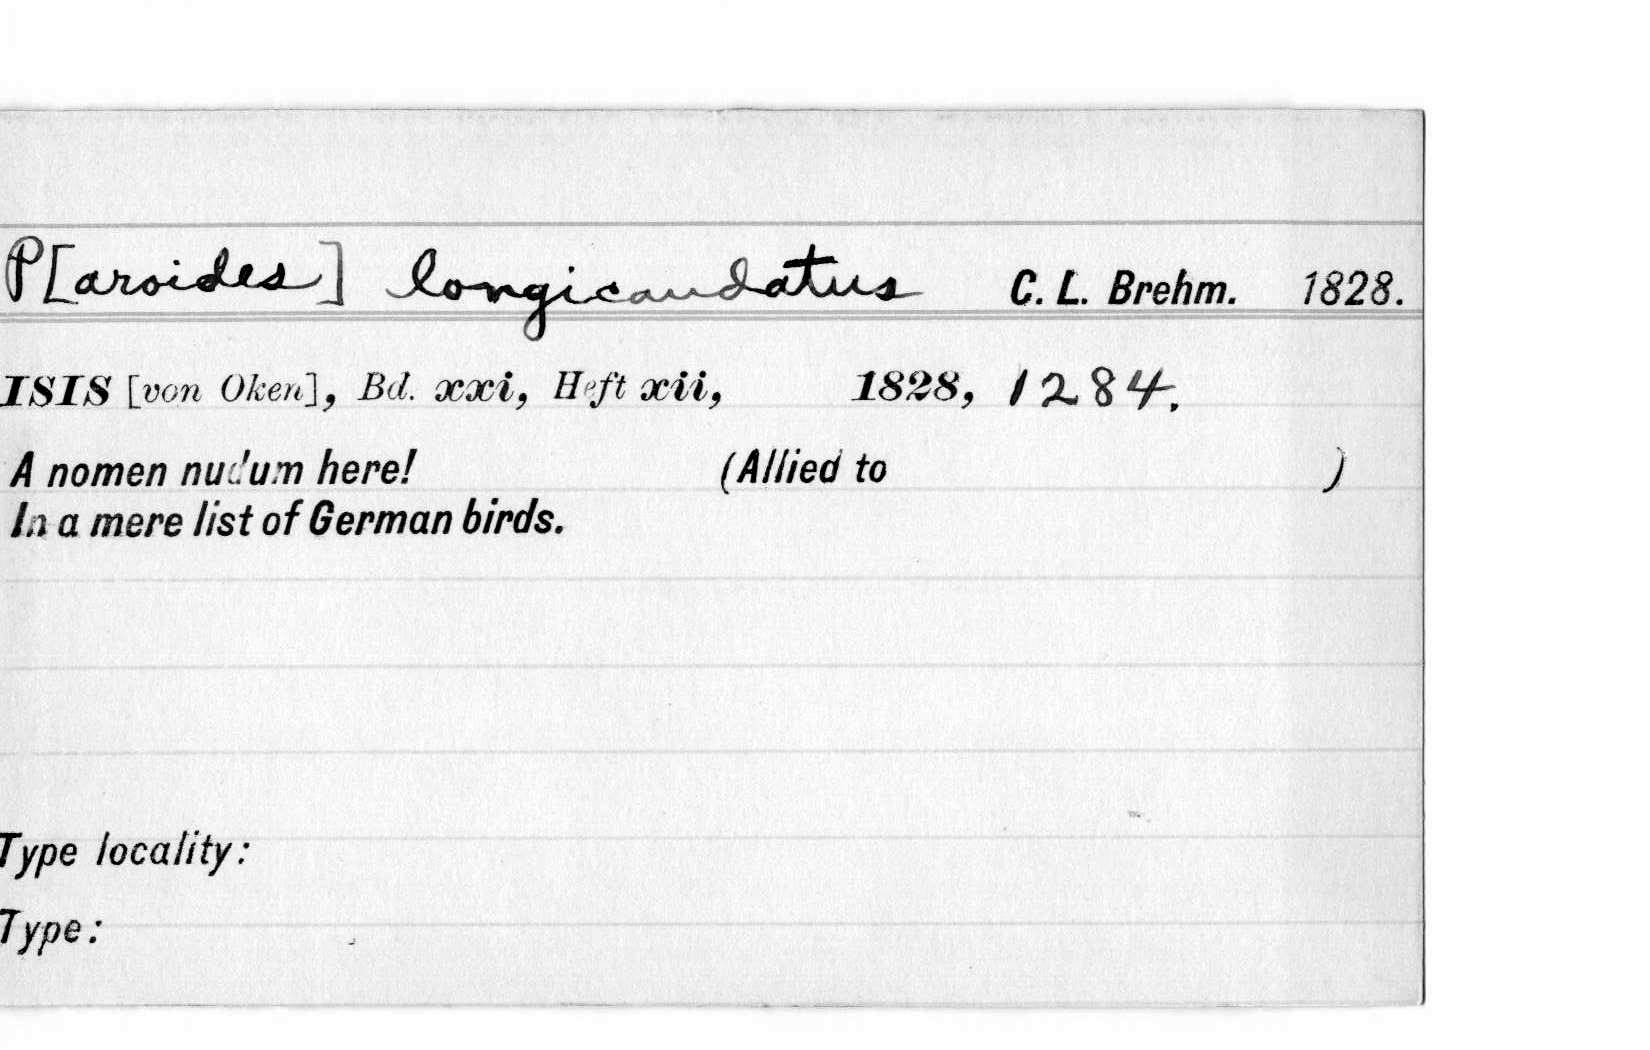 P[aroides] longicaudatus C. L. Brehm. 1828.
ISIS [von Oken], Bd. xxi, Heft xii, 1828, 1284.
A nomen nudum here! (Allied to )
In a mere list of German birds.
Type locality:
Type: